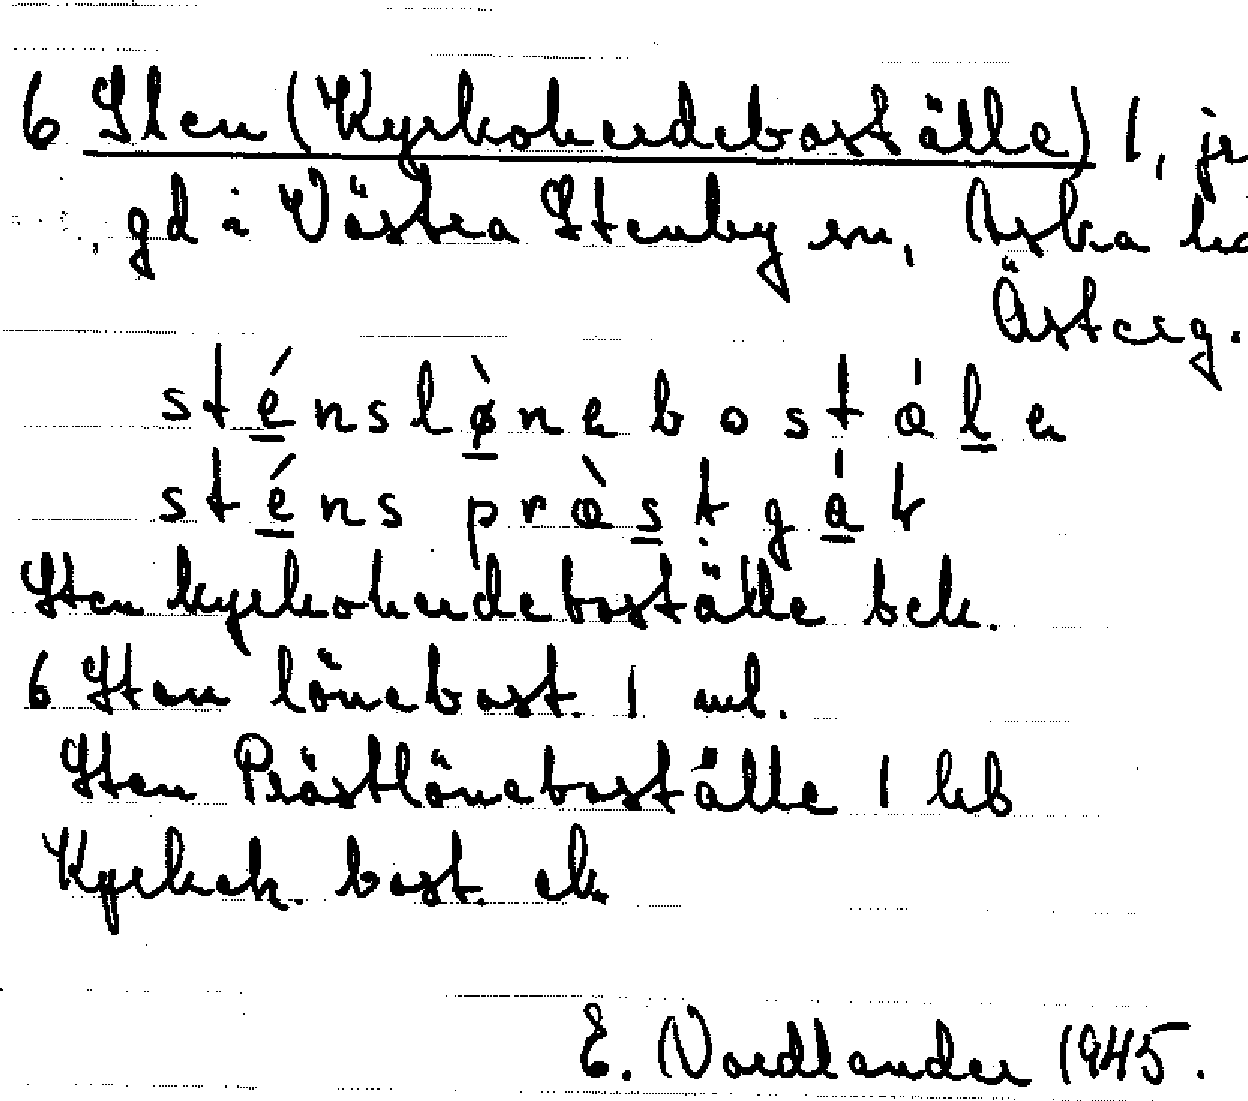 6 Sten (Kyrkoherdeboställe) 1, jr
gd i Västra Stenby sn, Aska hd
Österg.
sténslø̀nebostα'le
sténs prὰstgá't
Sten kyrkoherdeboställe bek.
6 Sten lönebost. 1 ml.
Sten Prästlöneboställe 1 hb
Kyrkoh. bost. ek
E. Nordlander 1945.